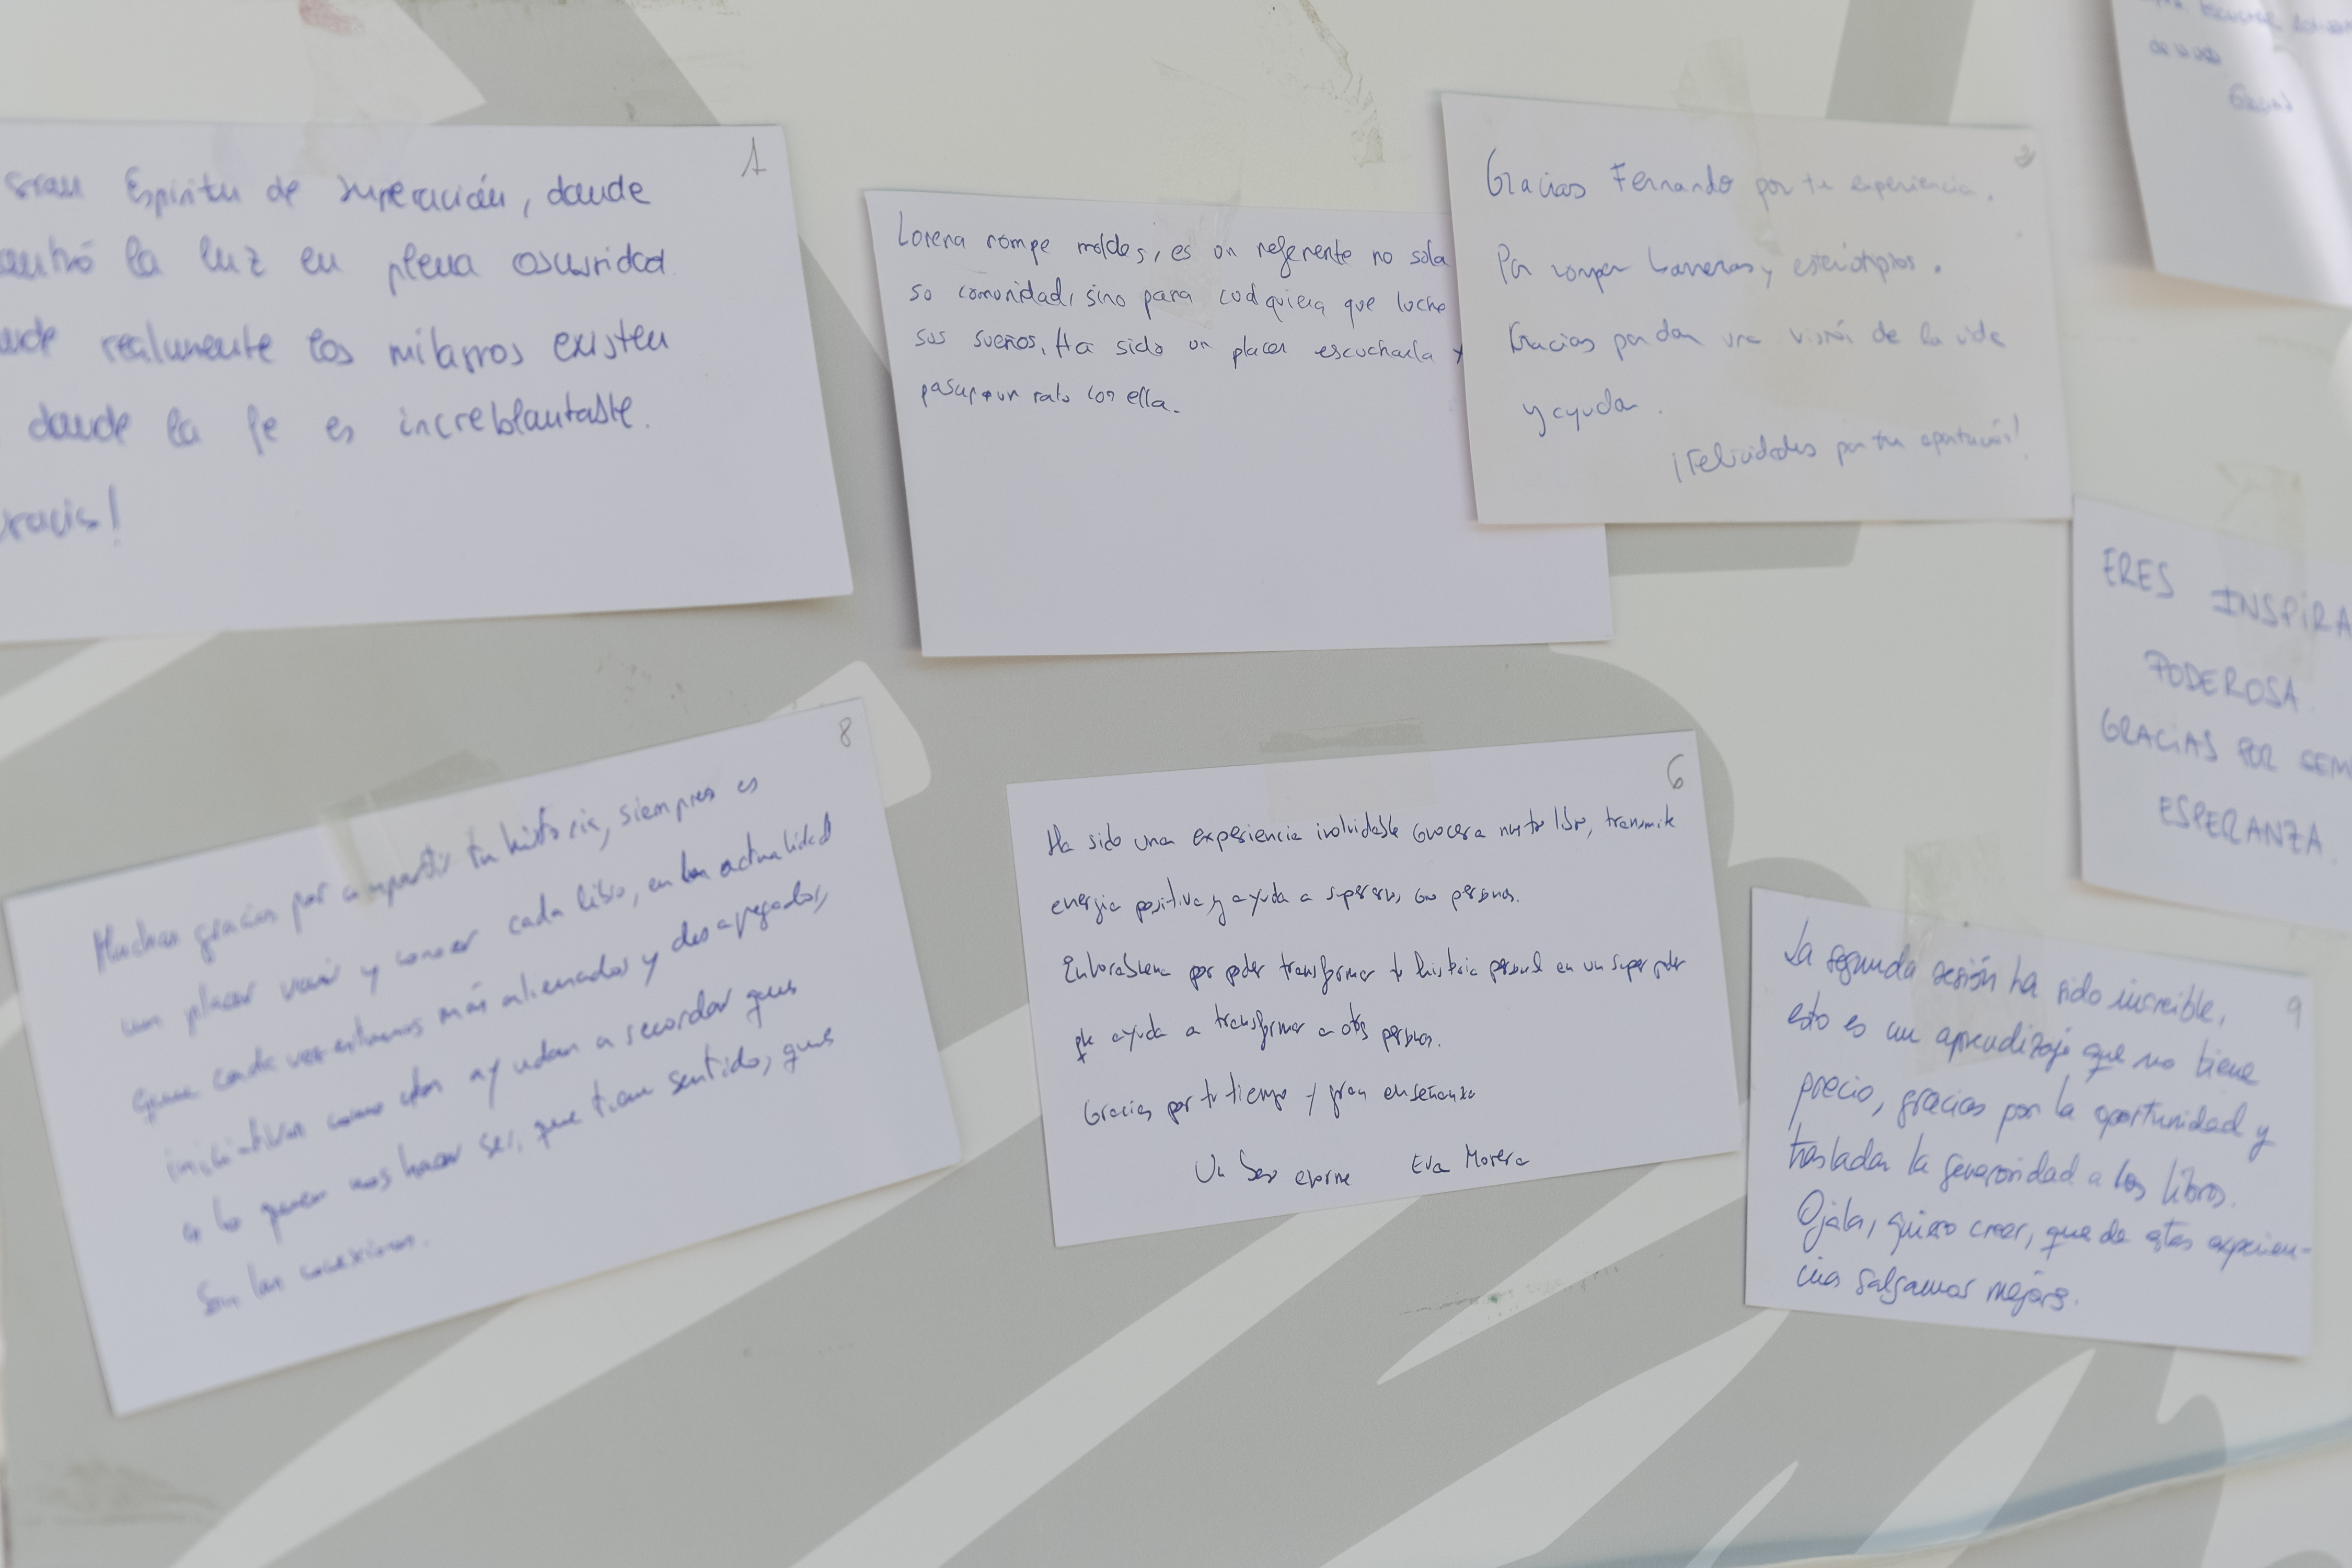 1
gran Espíritu de superación, donde
la luz en plena oscuridad
realmente los milagros existen
donde la fe es increblantable.
Gracis!
Lorena rompe moldes, es un referente no sola
su comunidad, sino para cualquiera que luche
sus sueños. Ha sido un placer escucharla y
pasar un rato con ella.
Gracias Fernando por tu experiencia.
Por romper barreras y estereotipos.
Gracias por dar una visión de la vida
y ayudar.
¡Felicidades por tu aportación!
Gracias
ERES INSPIRA
PODEROSA.
GRACIAS POR SEM
ESPERANZA.
8
Muchas gracias por compartir tu historia, siempre es
un placer venir y conocer cada libro, en la actualidad
que cada vez estamos más alienados y desapegados,
iniciativas como estas ayudan a recordar que
a lo que nos hacer ser, que tiene sentido, que
Son las conexiones.
6
Ha sido una experiencia inolvidable conocer a nuestro libro, transmite
energia positiva y ayuda a superarnos como personas.
Enhorabuena por poder transformar tu historia personal en un super poder
que ayuda a transformar a otras personas.
Gracias por tu tiempo y gran enseñanza
Un beso enorme Eva Morera
9
La segunda sesión ha sido increible,
esto es un aprendizaje que no tiene
precio, gracias por la oportunidad y
trasladar la generosidad a los libros.
Ojala, quiero creer, que de estas experien-
cias salgamos mejores.